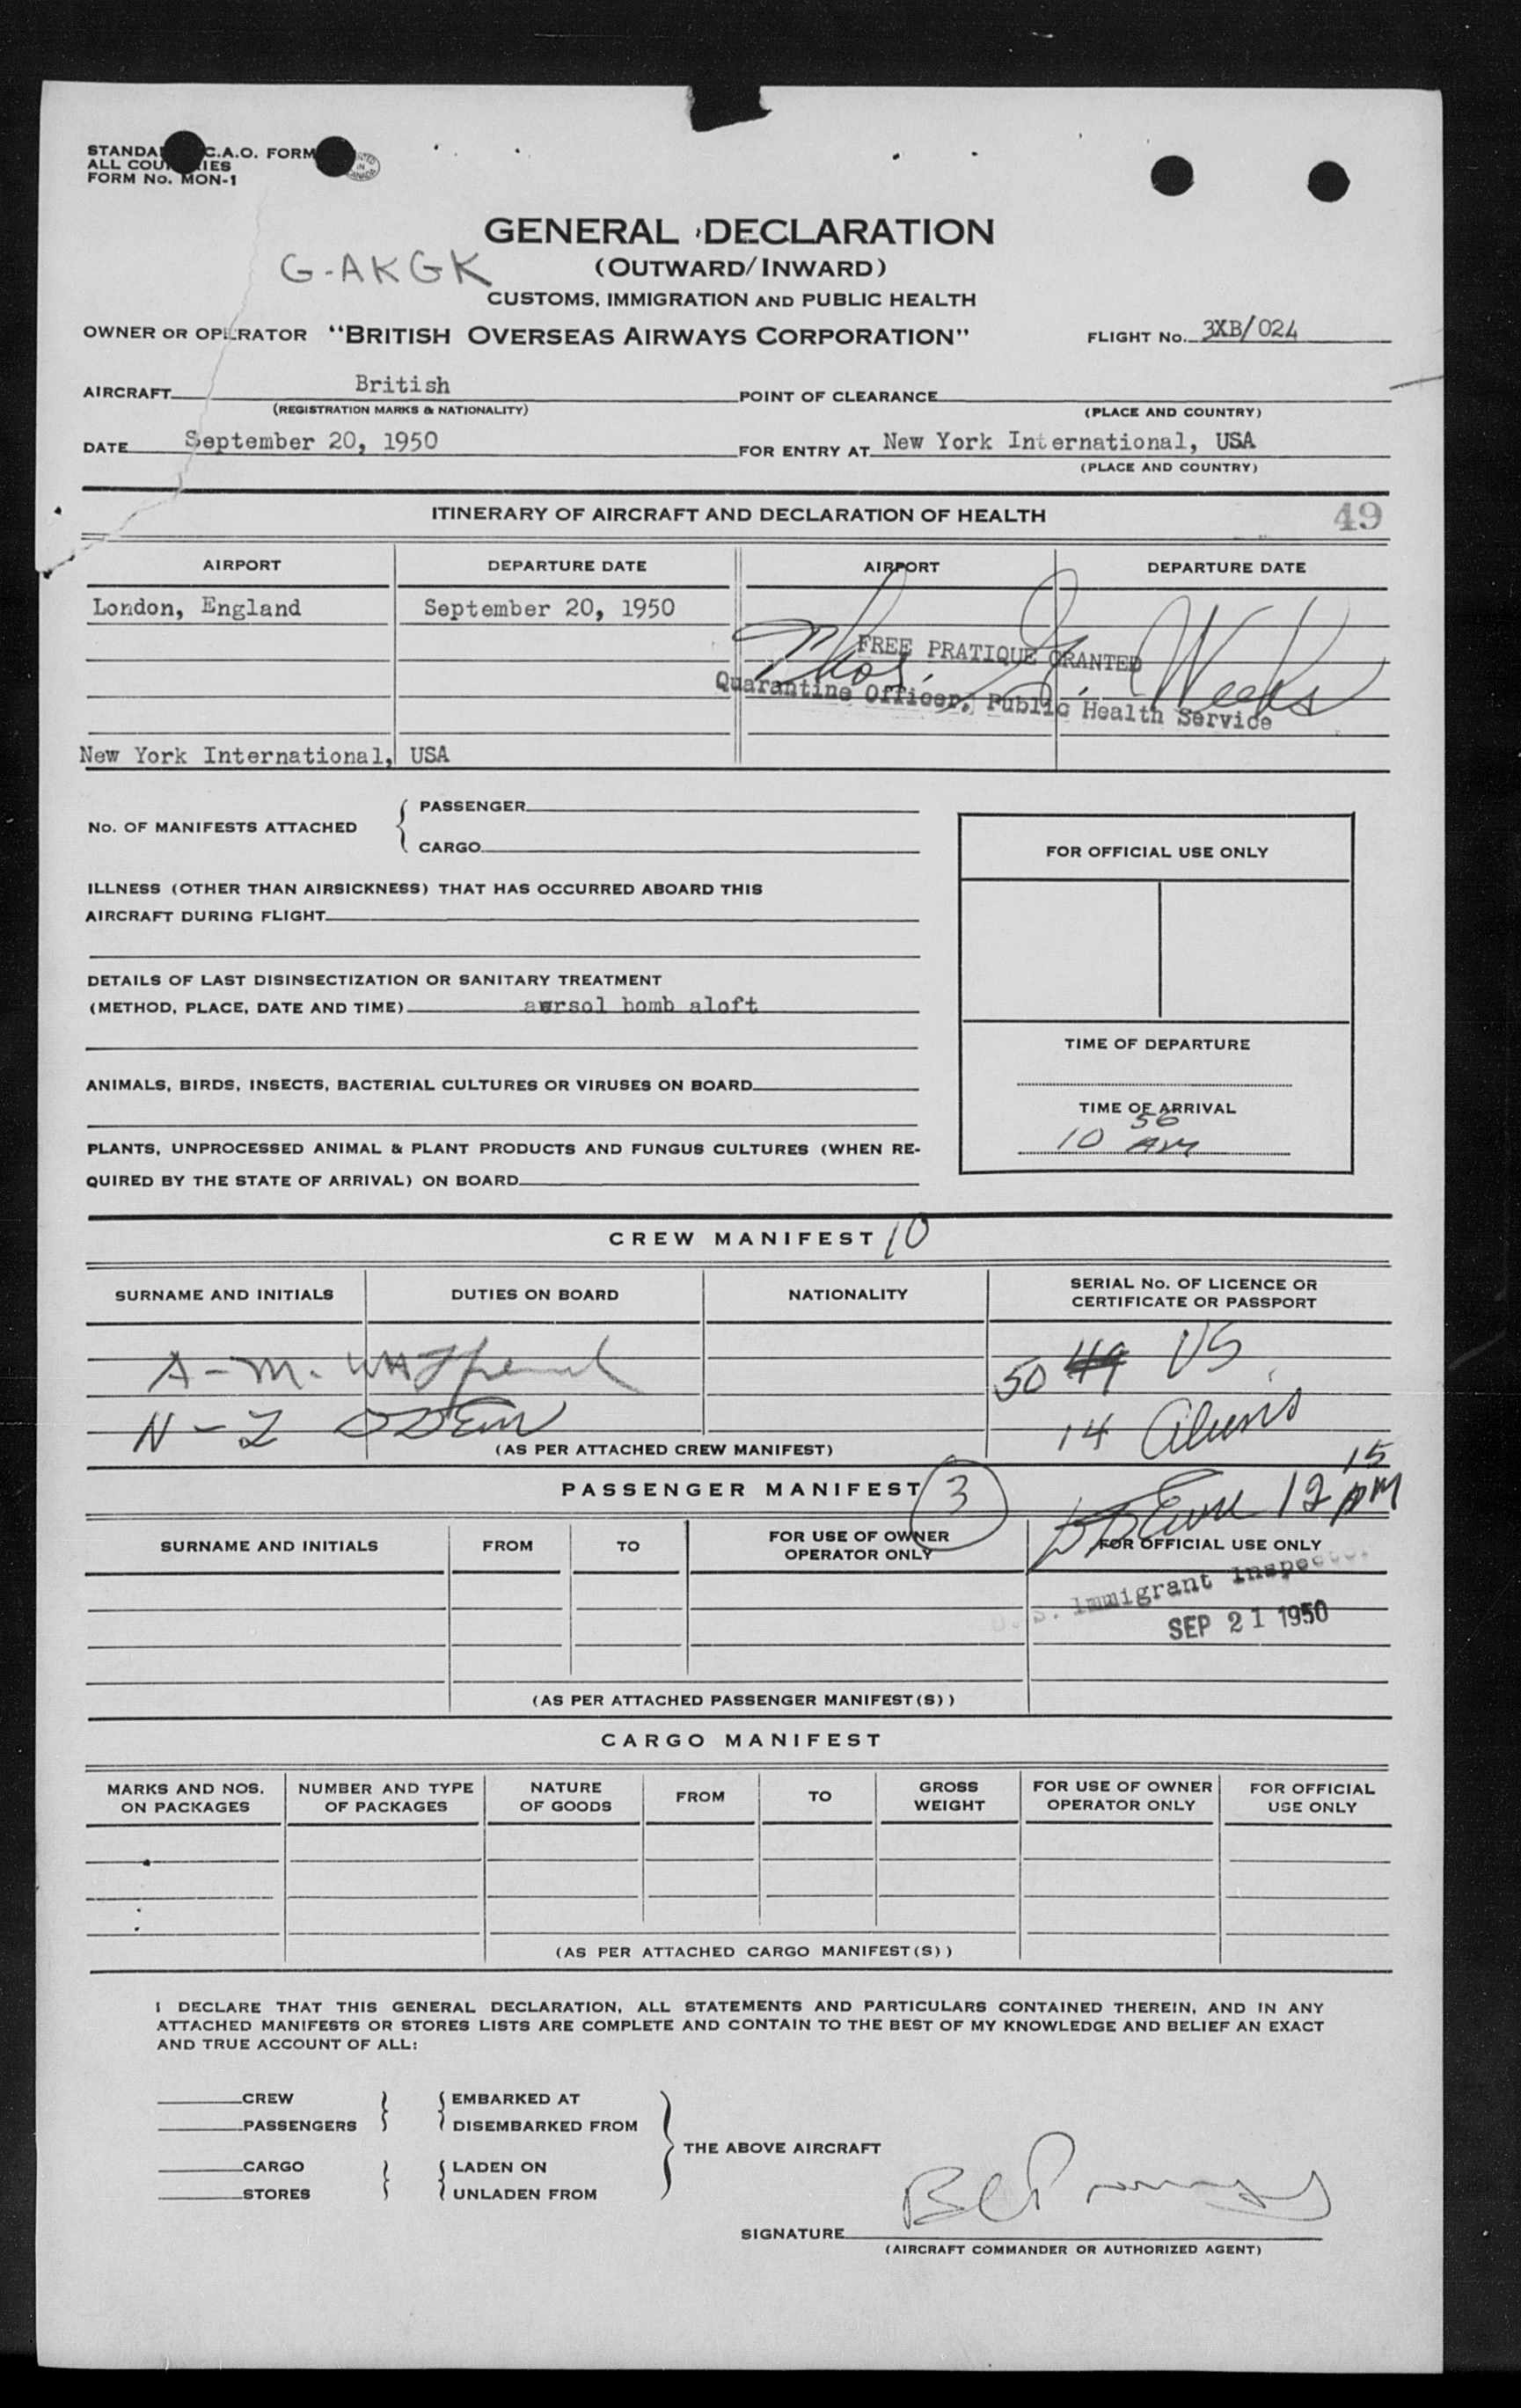 STANDA C.A.O. FORM
ALL COU IES
FORM No. MON-1
PRINTED IN CANADA
GENERAL DECLARATION
G-AKGK
(OUTWARD/INWARD)
CUSTOMS, IMMIGRATION AND PUBLIC HEALTH
OWNER OR OPERATOR "BRITISH OVERSEAS AIRWAYS CORPORATION" FLIGHT No. 3XB/024
AIRCRAFT British POINT OF CLEARANCE
(REGISTRATION MARKS & NATIONALITY) (PLACE AND COUNTRY)
DATE September 20, 1950 FOR ENTRY AT New York International, USA
(PLACE AND COUNTRY)
ITINERARY OF AIRCRAFT AND DECLARATION OF HEALTH 49
AIRPORT DEPARTURE DATE AIRPORT DEPARTURE DATE
London, England September 20, 1950
FREE PRATIQUE GRANTED
Thos. J. Weeks
Quarantine Officer, Public Health Service
New York International, USA
No. OF MANIFESTS ATTACHED
PASSENGER
CARGO
FOR OFFICIAL USE ONLY
ILLNESS (OTHER THAN AIRSICKNESS) THAT HAS OCCURRED ABOARD THIS
AIRCRAFT DURING FLIGHT
DETAILS OF LAST DISINSECTIZATION OR SANITARY TREATMENT
(METHOD, PLACE, DATE AND TIME) aersol bomb aloft
TIME OF DEPARTURE
ANIMALS, BIRDS, INSECTS, BACTERIAL CULTURES OR VIRUSES ON BOARD
TIME OF ARRIVAL
10 56 AM
PLANTS, UNPROCESSED ANIMAL & PLANT PRODUCTS AND FUNGUS CULTURES (WHEN RE-
QUIRED BY THE STATE OF ARRIVAL) ON BOARD
CREW MANIFEST 10
SURNAME AND INITIALS DUTIES ON BOARD NATIONALITY SERIAL No. OF LICENCE OR
CERTIFICATE OR PASSPORT
A - M.
50 49 US
N - Z ODEM
14 Aliens
(AS PER ATTACHED CREW MANIFEST)
PASSENGER MANIFEST 3
12 15 PM
SURNAME AND INITIALS FROM TO FOR USE OF OWNER
OPERATOR ONLY
FOR OFFICIAL USE ONLY
U. S. Immigrant Inspector
SEP 21 1950
(AS PER ATTACHED PASSENGER MANIFEST(S))
CARGO MANIFEST
MARKS AND NOS.
ON PACKAGES
NUMBER AND TYPE
OF PACKAGES
NATURE
OF GOODS
FROM TO
GROSS
WEIGHT
FOR USE OF OWNER
OPERATOR ONLY
FOR OFFICIAL
USE ONLY
(AS PER ATTACHED CARGO MANIFEST(S))
I DECLARE THAT THIS GENERAL DECLARATION, ALL STATEMENTS AND PARTICULARS CONTAINED THEREIN, AND IN ANY
ATTACHED MANIFESTS OR STORES LISTS ARE COMPLETE AND CONTAIN TO THE BEST OF MY KNOWLEDGE AND BELIEF AN EXACT
AND TRUE ACCOUNT OF ALL:
CREW EMBARKED AT
PASSENGERS DISEMBARKED FROM
THE ABOVE AIRCRAFT
CARGO LADEN ON
STORES UNLADEN FROM
SIGNATURE
(AIRCRAFT COMMANDER OR AUTHORIZED AGENT)